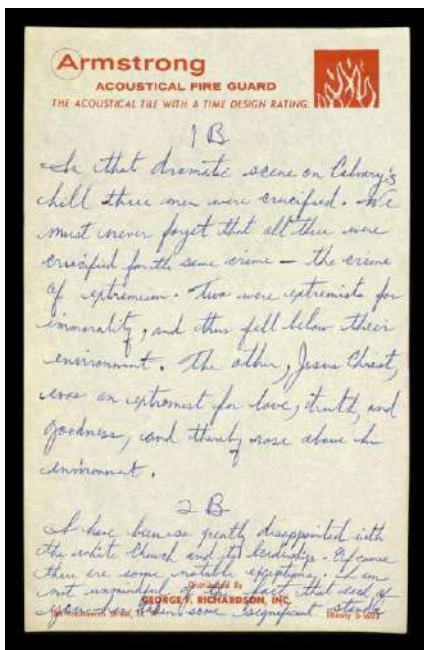 Armstrong
ACOUSTICAL FIRE GUARD
THE ACOUSTICAL TILE WITH A TIME DESIGN RATING.
1 B
In that dramatic scene on Calvary's
hill three men were crucified. We
must never forget that all three were
crucified for the same crime — the crime
of extremism. Two were extremists for
immorality, and thus fell below their
environment. The other, Jesus Christ,
was an extremist for love, truth, and
goodness, and thereby rose above his
environment.
2 B
I have been so greatly disappointed with
the white Church and its leadership. Of course
there are some notable exceptions. I am
not unmindful of the fact that each of
you has taken some significant stands
Distributed By
GEORGE F. RICHARDSON, INC.